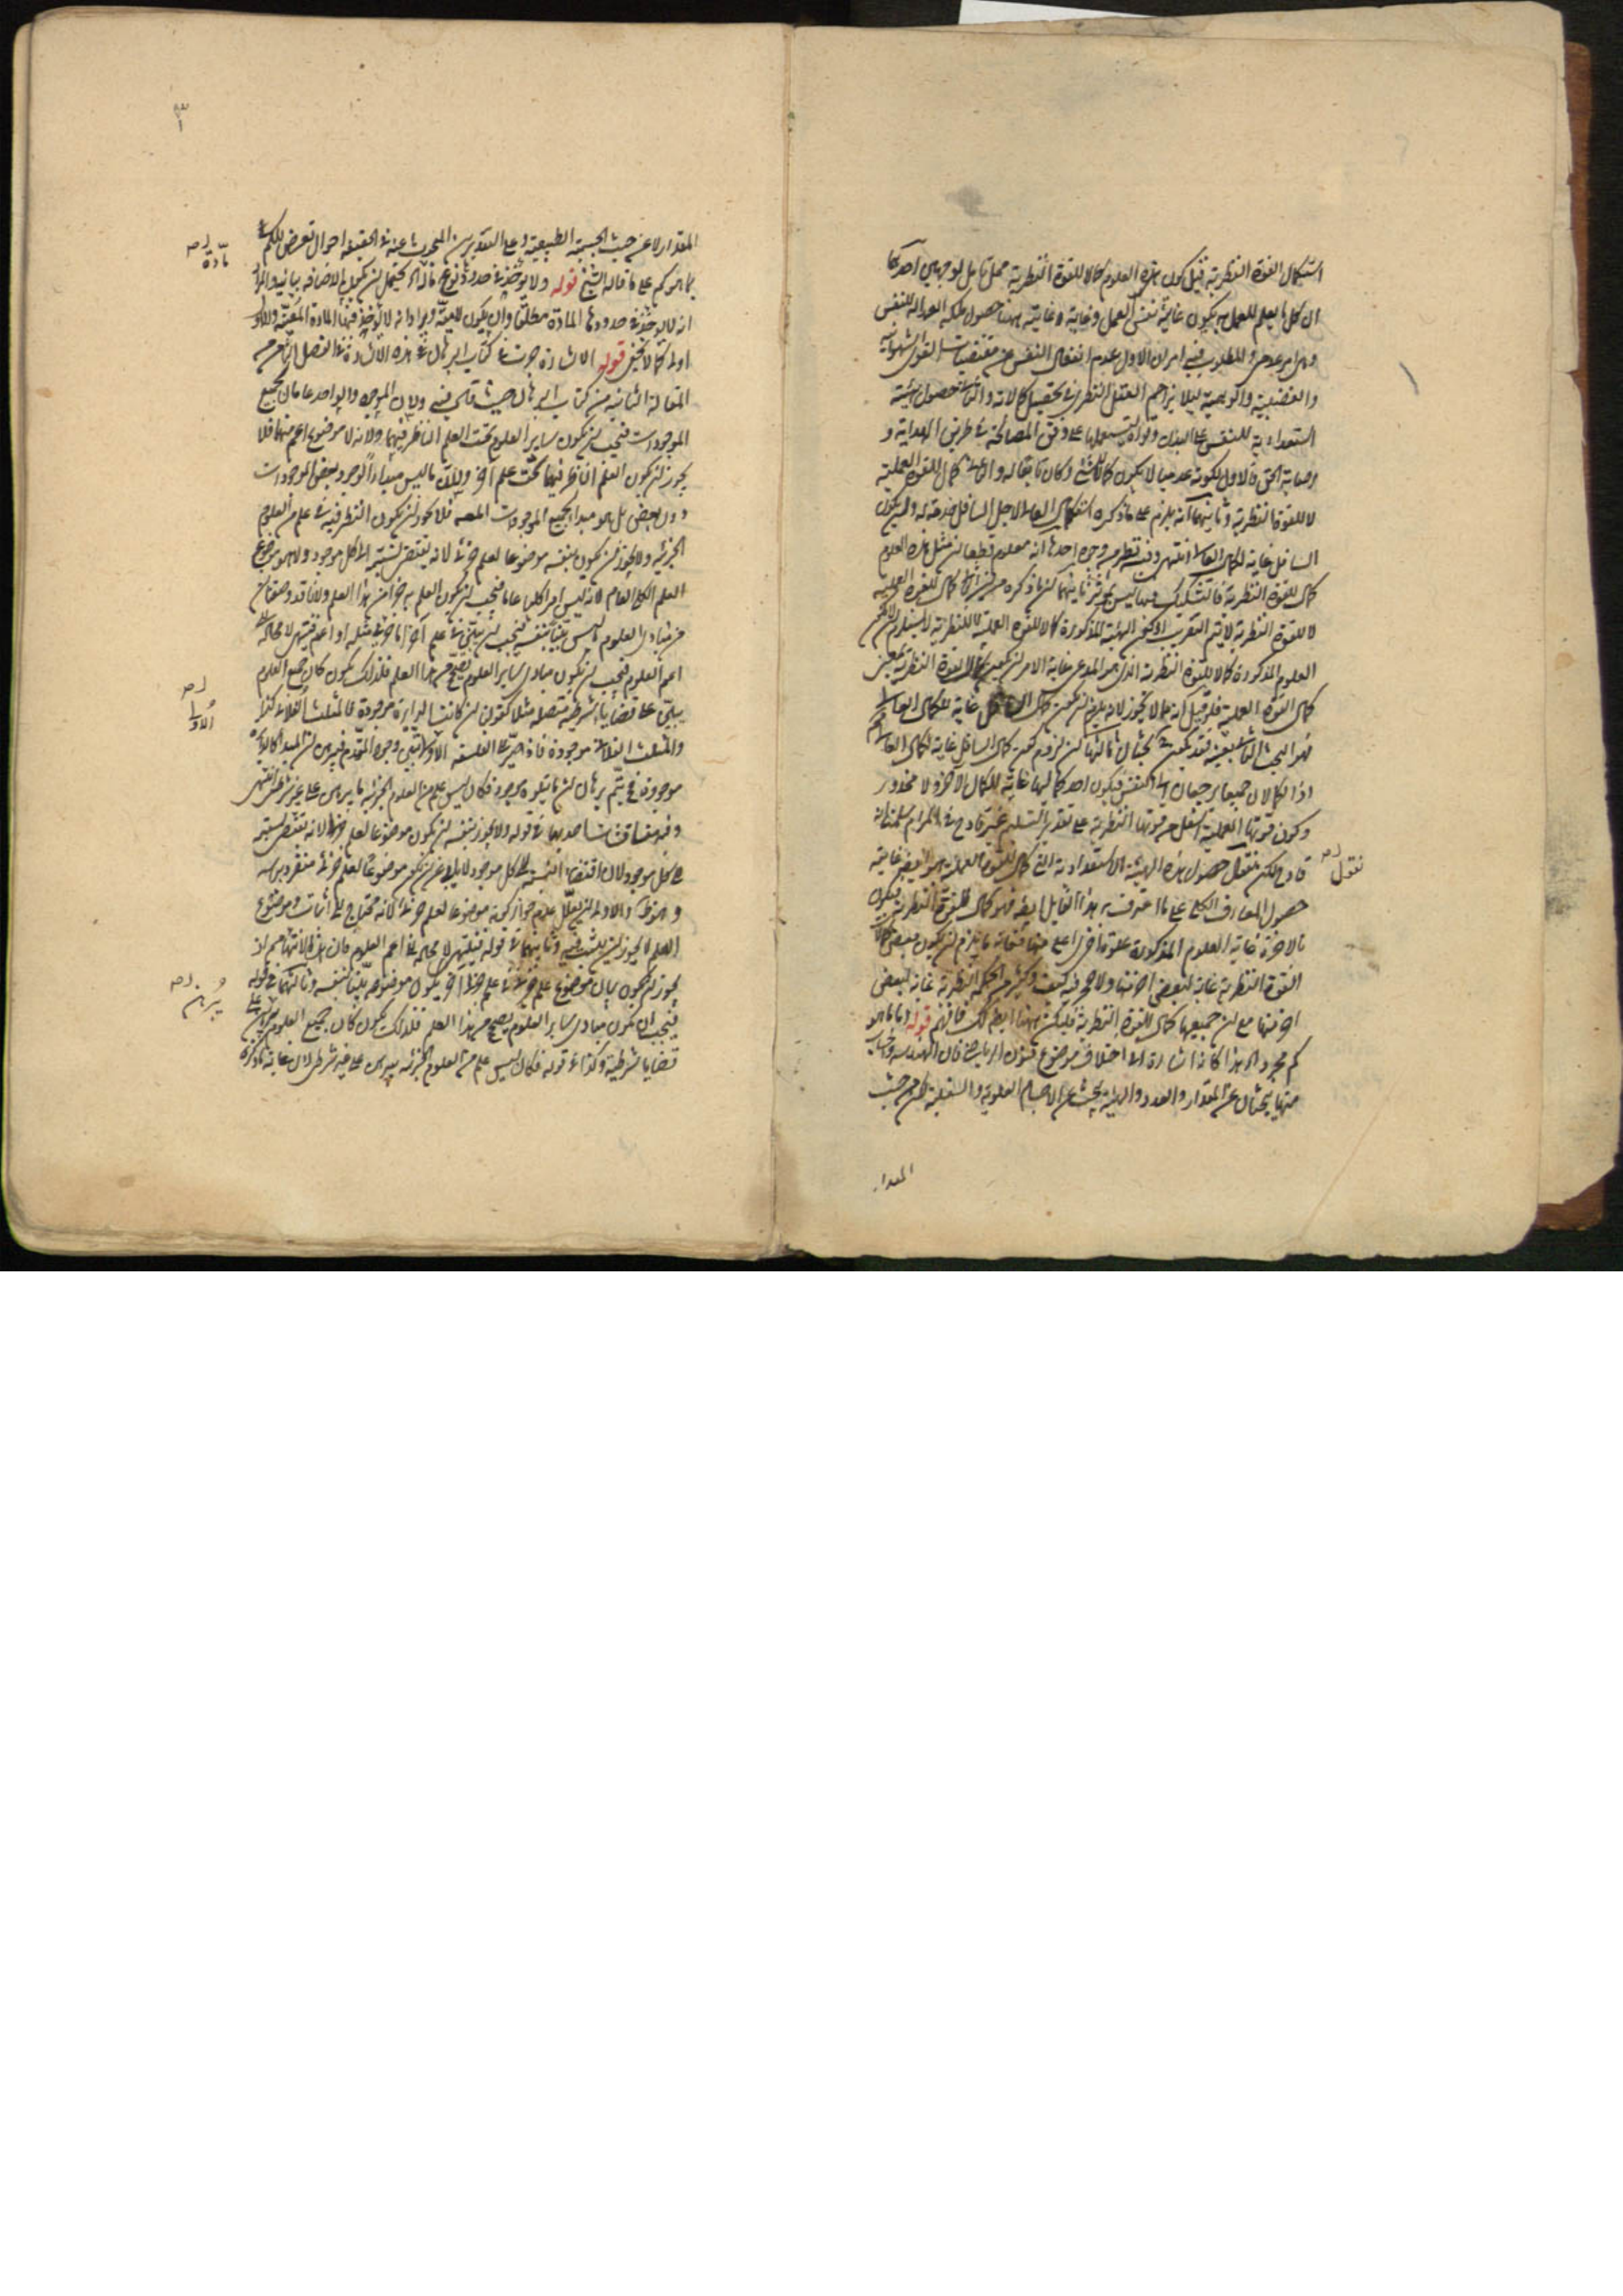 استكمال القوة النظرية قيل كون هذه العلوم كمالا للقوة النظرية محل تامل لوجهين احدهما
ان كل ما يعلم للعمل به يكون غايته نفس العمل وغاية غايته ههنا حصول ملكة العدالة للنفس
وهى امر عدمى والمطلوب فيه امران الاول عدم انفعال النفس عن مقتضيات القوى الشهوانية
والغضبية والوهمية ليلا يزاحم العقل النظرى فى تحصيل كمالاته والثانى حصول هيئة
استعدادية للنفس على البدن وقواه يستعملها على وفق المصالحة فى طريق الهداية و
اصابة الحق فالاول لكونه عدميا لا يكون كمالا لشئ وكان ما يقاله والثانى كمال للقوة العملية
لا للقوة النظرية وثانيهما انه يلزم على ما ذكره استكمال العالى لاجل السافل وخدمته له وان يكون
السافل غاية لكمال العالى انتهى وفيه نظر من وجوه احدها انه معلوم قطعا ان مثل هذه العلوم
كمال للقوة النظرية فالتشكيك فيها ليس بمؤثر ثانيهما ان ما ذكره من ان كمال للقوة العملية
لا للقوة النظرية لا يتم التقريب اذ كون الهيئة المذكورة كمالا للقوة العملية لا للنظرية لا يستلزم ان لا يكون
العلوم المذكورة كمالا للقوة النظرية الذى هو المدعى غاية الامر ان يكون كمال القوة النظرية لتحصيل
كمال القوة العملية فلو قيل انه مما لا يجوز لانه يلزم ان يكون كمال السافل غاية لكمال العالى
فهو البحث الثانى بعينه فقد يكون بحثان ثالثها ان لزوم كون كمال السافل غاية لكمال العالى
اذا الكمالان جميعا يرجعان الى النفس فيكون احد كماليها غاية للكمال الآخر ولا محذور
وكون قوتها العملية اسفل من قوتها النظرية على تقدير التسليم غير قادح فى المرام سلمنا انه
قادح لكن نقول حصول هذه الهيئة الاستعدادية التى كمال للقوة العملية هو ايضا غايته
نقول صح
حصول المعارف الكلى على ما اعترفت به هذا القايل ايضا فهو كمال للقوة النظرية فيكون
بالاخرة غاية العلوم المذكورة علوما اخرى اعلى منها فغاية ما يلزم ان يكون بعض كمالات
القوة النظرية غاية لبعض اخر منها ولا حجر فيه كيف وكثير من الحكمة النظرية غاية لبعض
اخر منها مع ان جميعها كمال للقوة النظرية فليكن ههنا ايضا كذلك فافهم قوله واما ما هو
كم مجرد الى هذا كانه اشارة الى اختلاف موضوع فنون الرياضى فان الهندسة والحساب
منها يبحثان عن المقدار والعدد والهيئة يبحث عن الاجسام العلوية والسفلية لكن من حيث
المقدار
٣
المقدار لا من حيث الجسمية الطبيعية وعلى التقديرين المبحوث عنه فى الحقيقة احوال تعرض للكم
مادة صح
بما هو كم على ما قاله الشيخ قوله ولا يوخذ فى حدوده نوع مادة يحتمل ان يكون الاضافة بيانية والمراد
انه لا يوخذ فى حدودها المادة مطلقا وان يكون للعهد ويراد انه لا يوخذ فيها المادة المعينة والاول
اولى كما لا يخفى قوله الاشارة جرت فى كتاب البرهان هذه الاشارة فى الفصل التاسع من
المقالة الثانية من كتاب البرهان حيث قال فيه ولان الموجود والواحد عامان لجميع
الموجودات فيجب ان يكون ساير العلوم تحت العلم الناظر فيهما ولانه لا موضوع اعم منهما فلا
يجوز ان يكون العلم الناظر فيهما تحت علم آخر ولان ما ليس مبداء لوجود بعض الموجودات
دون بعض بل هو مبدا لجميع الموجودات المعلولة فلا يجوز ان يكون النظر فيه فى علم من العلوم
الجزئية ولا يجوز ان يكون بنفسه موضوعا لعلم جزئى لانه يقتضى نسبة الى كل موجود ولا هو موضوع
العلم الكلى العام لانه ليس امرا كليا عاما فيجب ان يكون العلم به جزءا من هذا العلم ولانا قد وضعنا ان
من مبادى العلوم ما ليس بينا بنفسه فيجب ان يتبين فى علم آخر اما جزئى مثله او اعم فينتهى لا محالة الى
اعم العلوم فيجب ان يكون مبادى ساير العلوم يصح من هذا العلم فلذلك يكون كان جميع العلوم
يبتنى على قضايا شرطية متصلة مثلا كقولنا ان كانت الدايرة موجودة فالمثلث الفلانى كذا
الاولى صح
والمثلث الفلانى موجودة فاذا صير الى الفلسفة الاولى يتبين وجود المقدم فيبرهن ان المبدا كالدايرة
موجودة فح يتم برهان ان ما يتلوه موجود فكان ليس علم من العلوم الجزئية ما يبرهن على غير شرطى انتهى
وفيه مناقشات احديها فى قوله ولا يجوز بنفسه ان يكون موضوعا لعلم جزئى لانه يقتضى نسبة
الى كل موجود لان اقتضاء النسبة الى كل موجود لا يابى عن ان يكون موضوعا لعلم جزئى منفرد براسه
وهو ظ والاولى ان يعلل عدم جواز كونه موضوعا لعلم جزئى بانه محتاج الى اثبات وموضوع
العلم لا يجوز ان يثبت فيه وثانيهما فى قوله فينتهى لا محالة الى اعم العلوم فان هذا الانتهاء مم اذ
يجوز ان يكون بيان موضوع علم جزئى فى علم جزئى آخر يكون موضوعه بينا بنفسه وثالثها فى قوله
يبرهن صح
فيجب ان يكون مبادى ساير العلوم يصح من هذا العلم فلذلك يكون كان جميع العلوم يبرهن على
قضايا شرطية وكذا فى قوله فكان ليس علم من العلوم الجزئية يبرهن على غير شرطى لان غاية ما ذكره